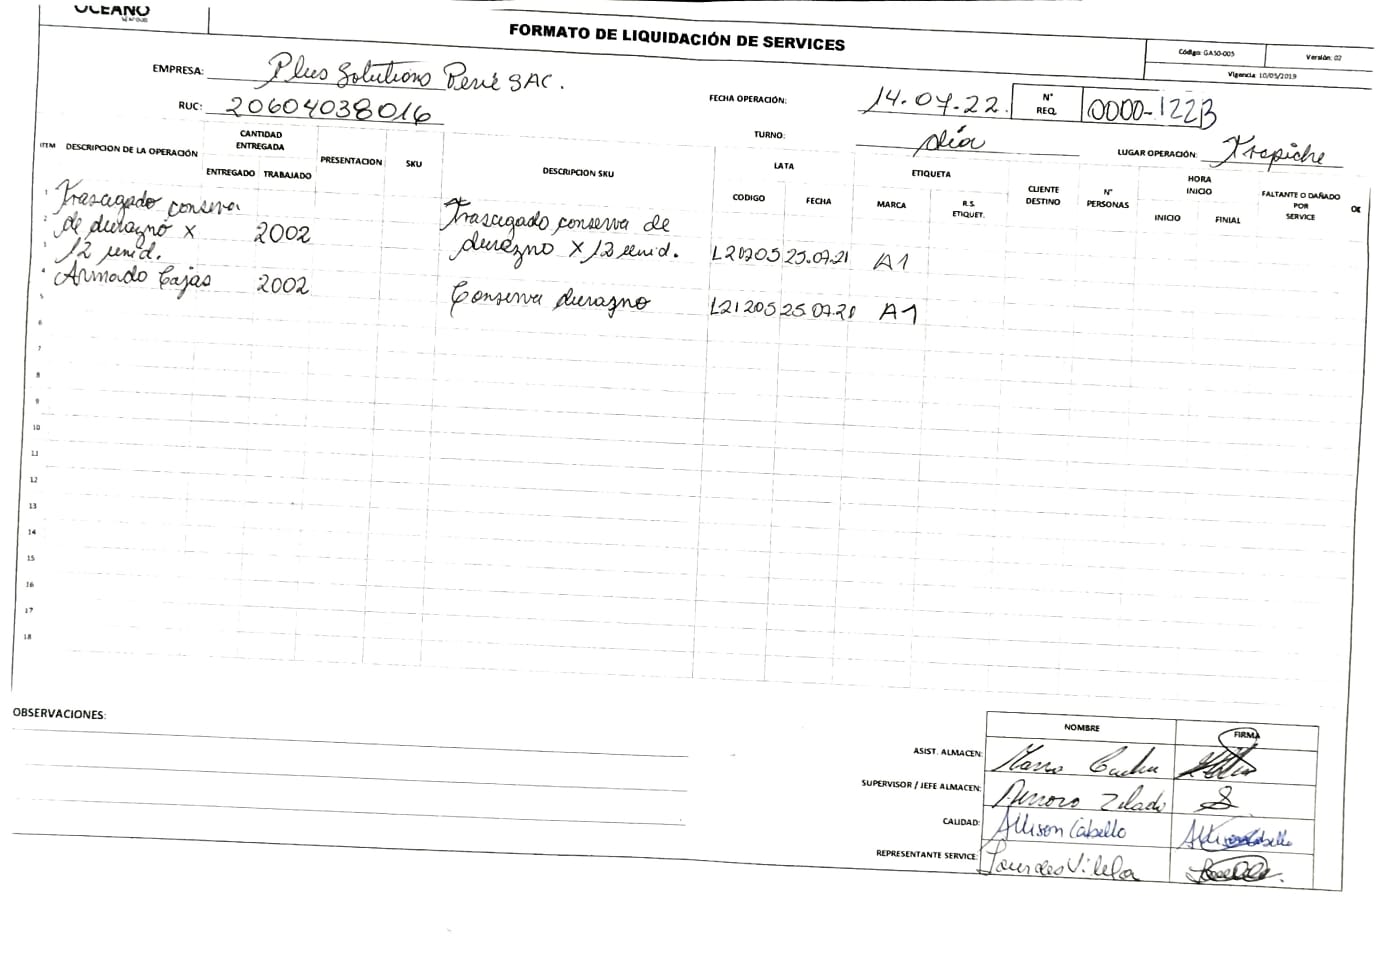 OCEANO
FORMATO DE LIQUIDACIÓN DE SERVICES
Código: GASO-005
Versión: 02
Vigencia 10/05/2019
EMPRESA: Plus Solutions Perú SAC.
RUC: 20604038016
FECHA OPERACIÓN: 14.07.22.
N° REQ. 0000-1223
TURNO: día
LUGAR OPERACIÓN: Trapiche
ITEM
DESCRIPCION DE LA OPERACIÓN
CANTIDAD ENTREGADA
ENTREGADO
TRABAJADO
PRESENTACION
SKU
DESCRIPCION SKU
LATA
CODIGO
FECHA
ETIQUETA
MARCA
R.S. ETIQUET.
CLIENTE DESTINO
N° PERSONAS
HORA INICIO
INICIO
FINIAL
FALTANTE O DAÑADO POR SERVICE
1
Trasegado conserva
2
de durazno x 2002
3
12 unid.
Trasegado conserva de
durazno x 12 unid. 25.07.21 A1
4
Armado Cajas 2002
5
Conserva durazno L21205 A1
6
7
8
9
10
11
12
13
14
15
16
17
18
OBSERVACIONES:
NOMBRE
FIRMA
ASIST. ALMACEN:
SUPERVISOR / JEFE ALMACEN:
CALIDAD: Allison Cabello
REPRESENTANTE SERVICE: Lourdes Vilela